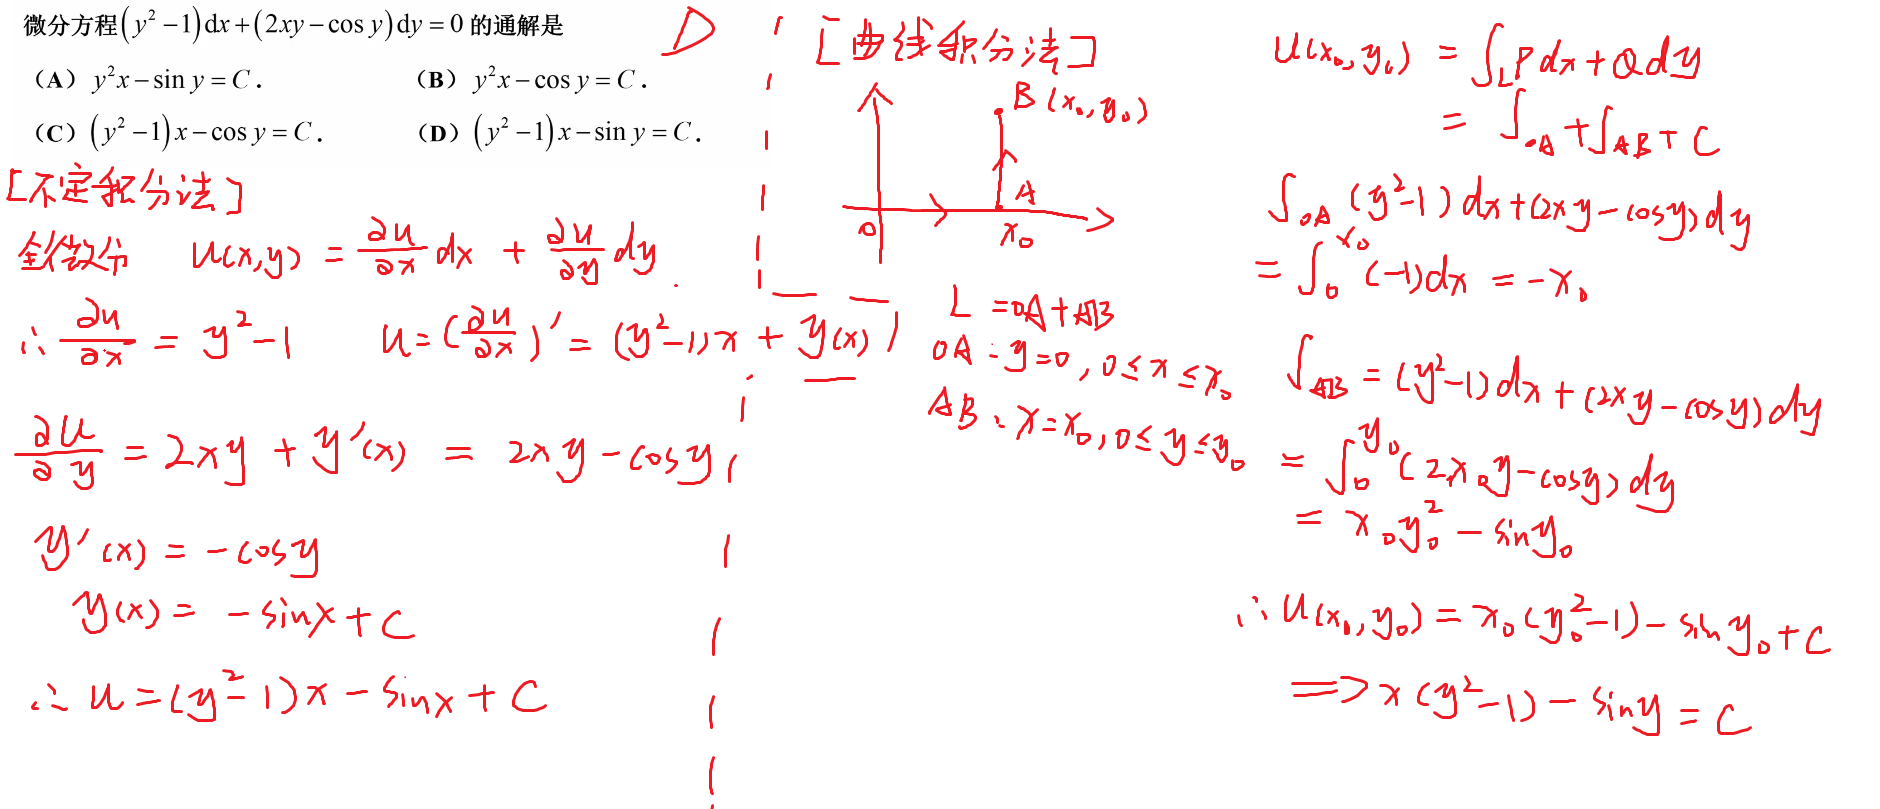 微分方程(y² −1)dx+(2xy−cos y)dy = 0 的通解是
D
（A）y²x−sin y = C．
（B）y²x−cos y = C．
（C）(y² −1)x−cos y = C．
（D）(y² −1)x−sin y = C．
[不定积分法]
全微分 u(x,y) = ∂u/∂x dx + ∂u/∂y dy.
∴ ∂u/∂x = y²−1 u=(∂u/∂x)′ = (y²−1)x + y(x)
∂u/∂y = 2xy + y′(x) = 2xy−cosy
y′(x) = −cosy
y(x) = −sinx+C
∴ u=(y²−1)x−sinx+C
[曲线积分法]
B(x₀,y₀)
A
0
x₀
L =0A+AB
0A：y=0, 0≤x≤x₀
AB：x=x₀, 0≤y≤y₀
u(x₀,y₀) = ∫_L Pdx+Qdy
= ∫_0A +∫_AB + C
∫_0A (y²−1)dx+(2xy−cosy)dy
= ∫₀^x₀ (−1)dx = −x₀
∫_AB = (y²−1)dx+(2xy−cosy)dy
= ∫₀^y₀ (2x₀y−cosy)dy
= x₀y₀² − siny₀
∴ u(x₀,y₀) = x₀(y₀²−1)−siny₀+C
⇒ x(y²−1)−siny = C